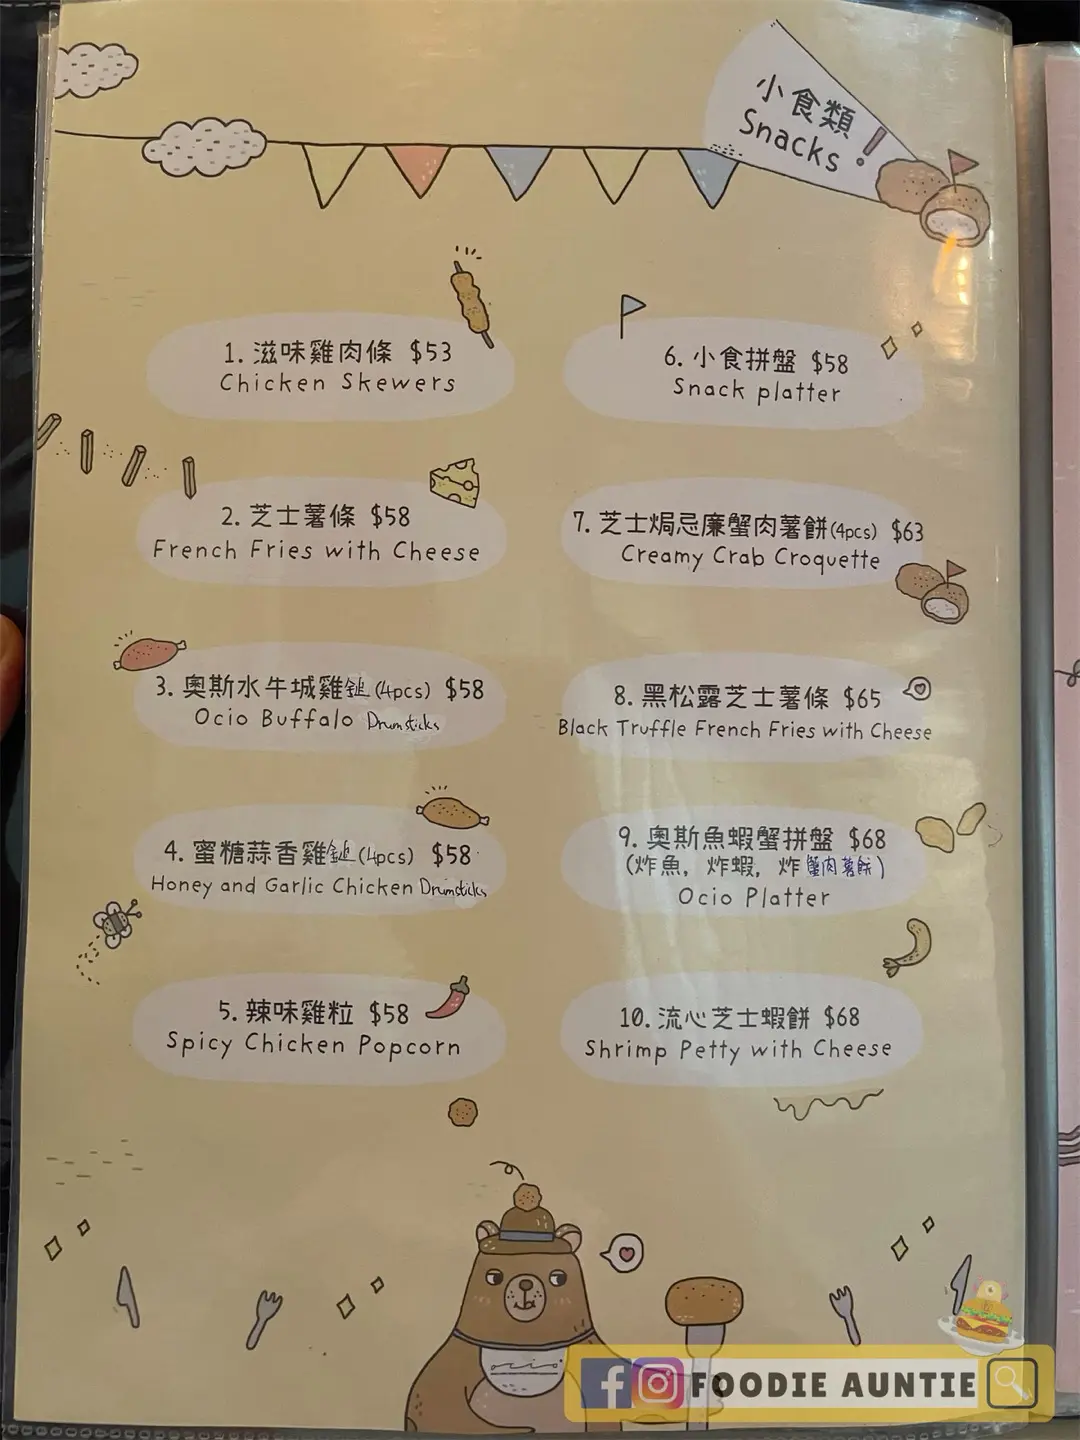 小食類!
Snacks
1. 滋味雞肉條 $53
Chicken Skewers
2. 芝士薯條 $58
French Fries with Cheese
3. 奧斯水牛城雞鎚(4pcs) $58
Ocio Buffalo Drumsticks
4. 蜜糖蒜香雞鎚(4pcs) $58
Honey and Garlic Chicken Drumsticks
5. 辣味雞粒 $58
Spicy Chicken Popcorn
6. 小食拼盤 $58
Snack platter
7. 芝士焗忌廉蟹肉薯餅(4pcs) $63
Creamy Crab Croquette
8. 黑松露芝士薯條 $65
Black Truffle French Fries with Cheese
9. 奧斯魚蝦蟹拼盤 $68
(炸魚, 炸蝦, 炸蟹肉薯餅)
Ocio Platter
10. 流心芝士蝦餅 $68
Shrimp Petty with Cheese
FOODIE AUNTIE